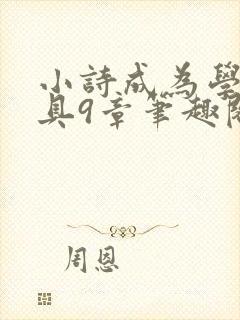 小詩成為學
具9章筆趣閣
周恩